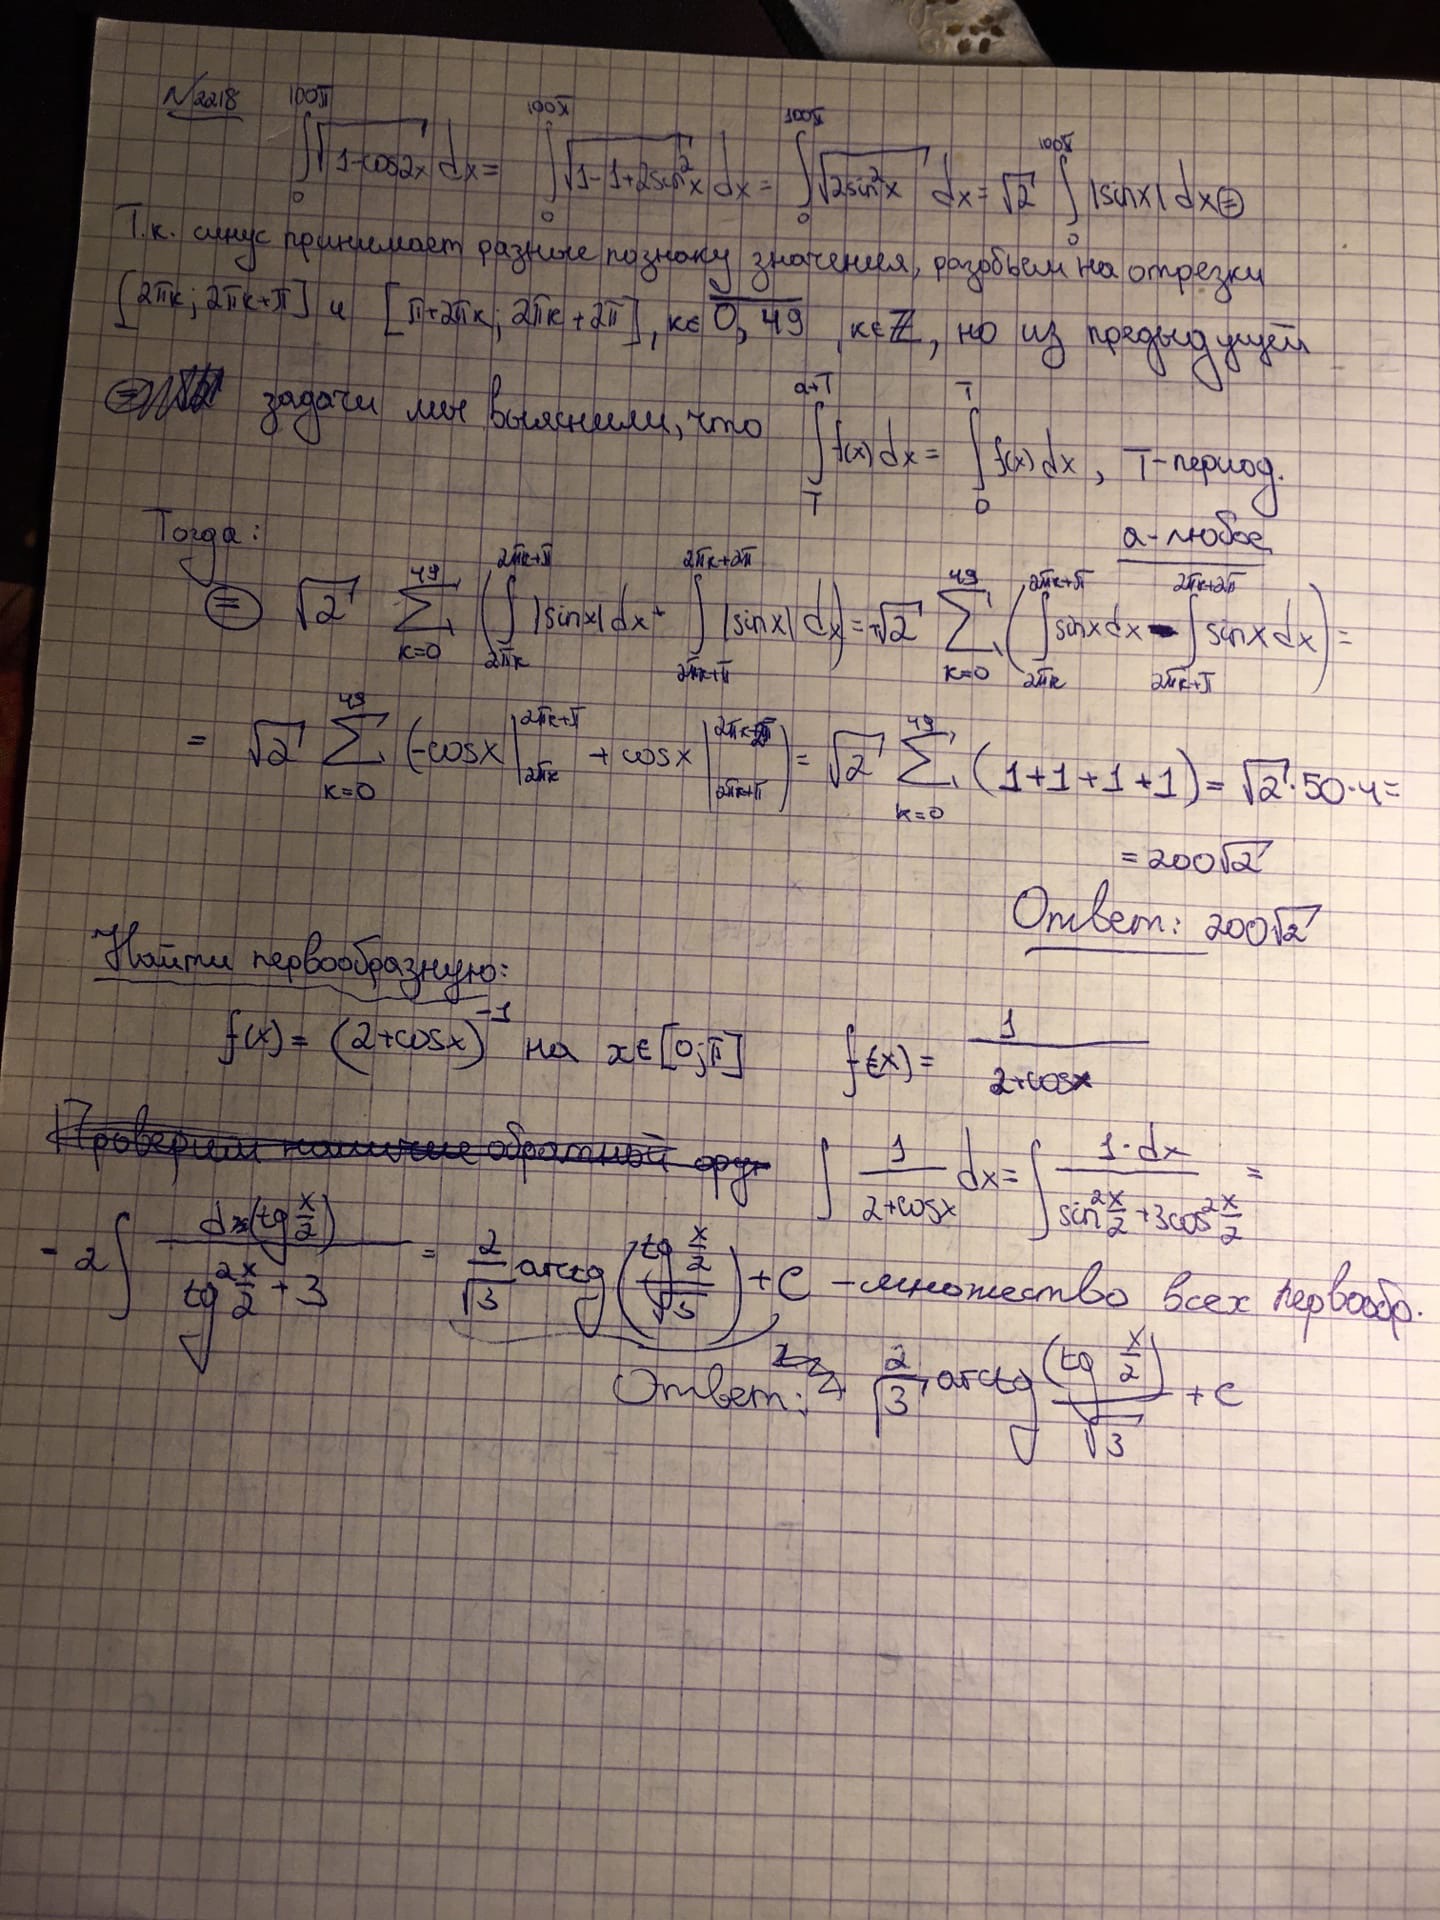 N2218 ∫₀^{100π} √(1-cos2x) dx = ∫₀^{100π} √(1-1+2sin²x) dx = ∫₀^{100π} √(2sin²x) dx = √2 ∫₀^{100π} |sinx| dx ⊜
Т.к. синус принимает разные по знаку значения, разобьем на отрезки
[2πk; 2πk+π] и [π+2πk; 2πk+2π], k∈ 0, 49, k∈ℤ, но из предыдущей
задачи мы выяснили, что ∫_T^{a+T} f(x) dx = ∫_0^T f(x) dx, T-период.
a-любое
Тогда:
⊜ √2 ∑_{k=0}^{49} (∫_{2πk}^{2πk+π} |sinx| dx + ∫_{2πk+π}^{2πk+2π} |sinx| dx) = √2 ∑_{k=0}^{49} (∫_{2πk}^{2πk+π} sinx dx - ∫_{2πk+π}^{2πk+2π} sinx dx) =
= √2 ∑_{k=0}^{49} (-cosx |_{2πk}^{2πk+π} + cosx |_{2πk+π}^{2πk+2π}) = √2 ∑_{k=0}^{49} (1+1+1+1) = √2·50·4 =
= 200√2
Ответ: 200√2
Найти первообразную:
f(x) = (2+cosx)^{-1} на x∈[0;π] f(x) = 1/(2+cosx)
Проверим наличие обратной фун ∫ 1/(2+cosx) dx = ∫ 1·dx/(sin² x/2 + 3cos² x/2) =
= 2∫ d(tg x/2)/(tg² x/2 + 3) = 2/√3 arctg(tg x/2 / √3) + C - множество всех первообр.
Ответ: 2/√3 arctg (tg x/2)/√3 + C